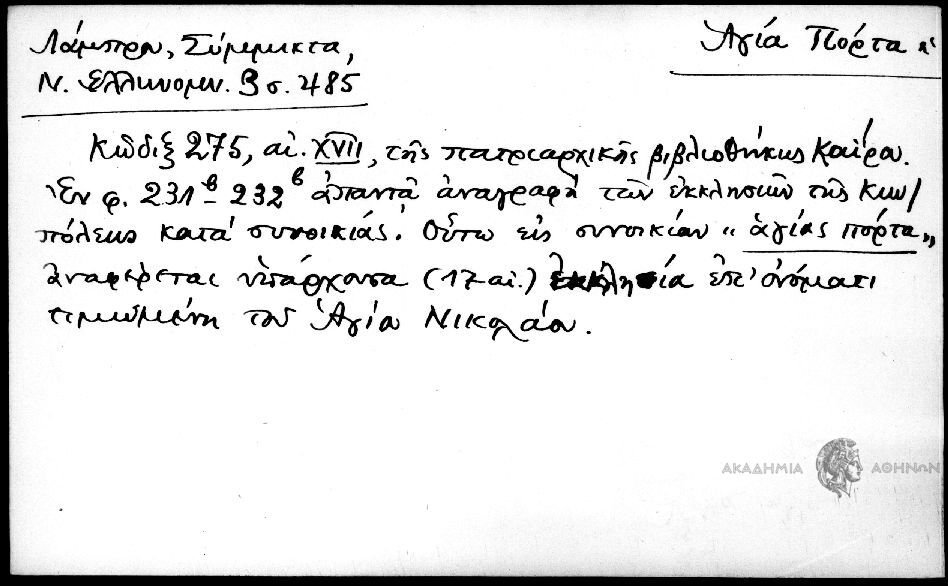 Λάμπρου, Σύμμικτα,
Ν. Ελληνομν. 9 σ. 485
Ἁγία Πόρτα
Κῶδιξ 275, αἰ. XVII, τῆς πατριαρχικῆς βιβλιοθήκης Καΐρου.
Ἐν φ. 231β – 232β ἀπαντᾶ ἀναγραφὴ τῶν ἐκκλησιῶν τῆς Κων/
πόλεως κατὰ συνοικίας. Οὕτω εἰς συνοικίαν "ἁγίας πόρτα"
ἀναφέρεται ὑπάρχουσα (17 αἰ.) ἐκκλησία ἐπ' ὀνόματι
τιμωμένη τοῦ Ἁγίου Νικολάου.
ΑΚΑΔΗΜΙΑ ΑΘΗΝΩΝ